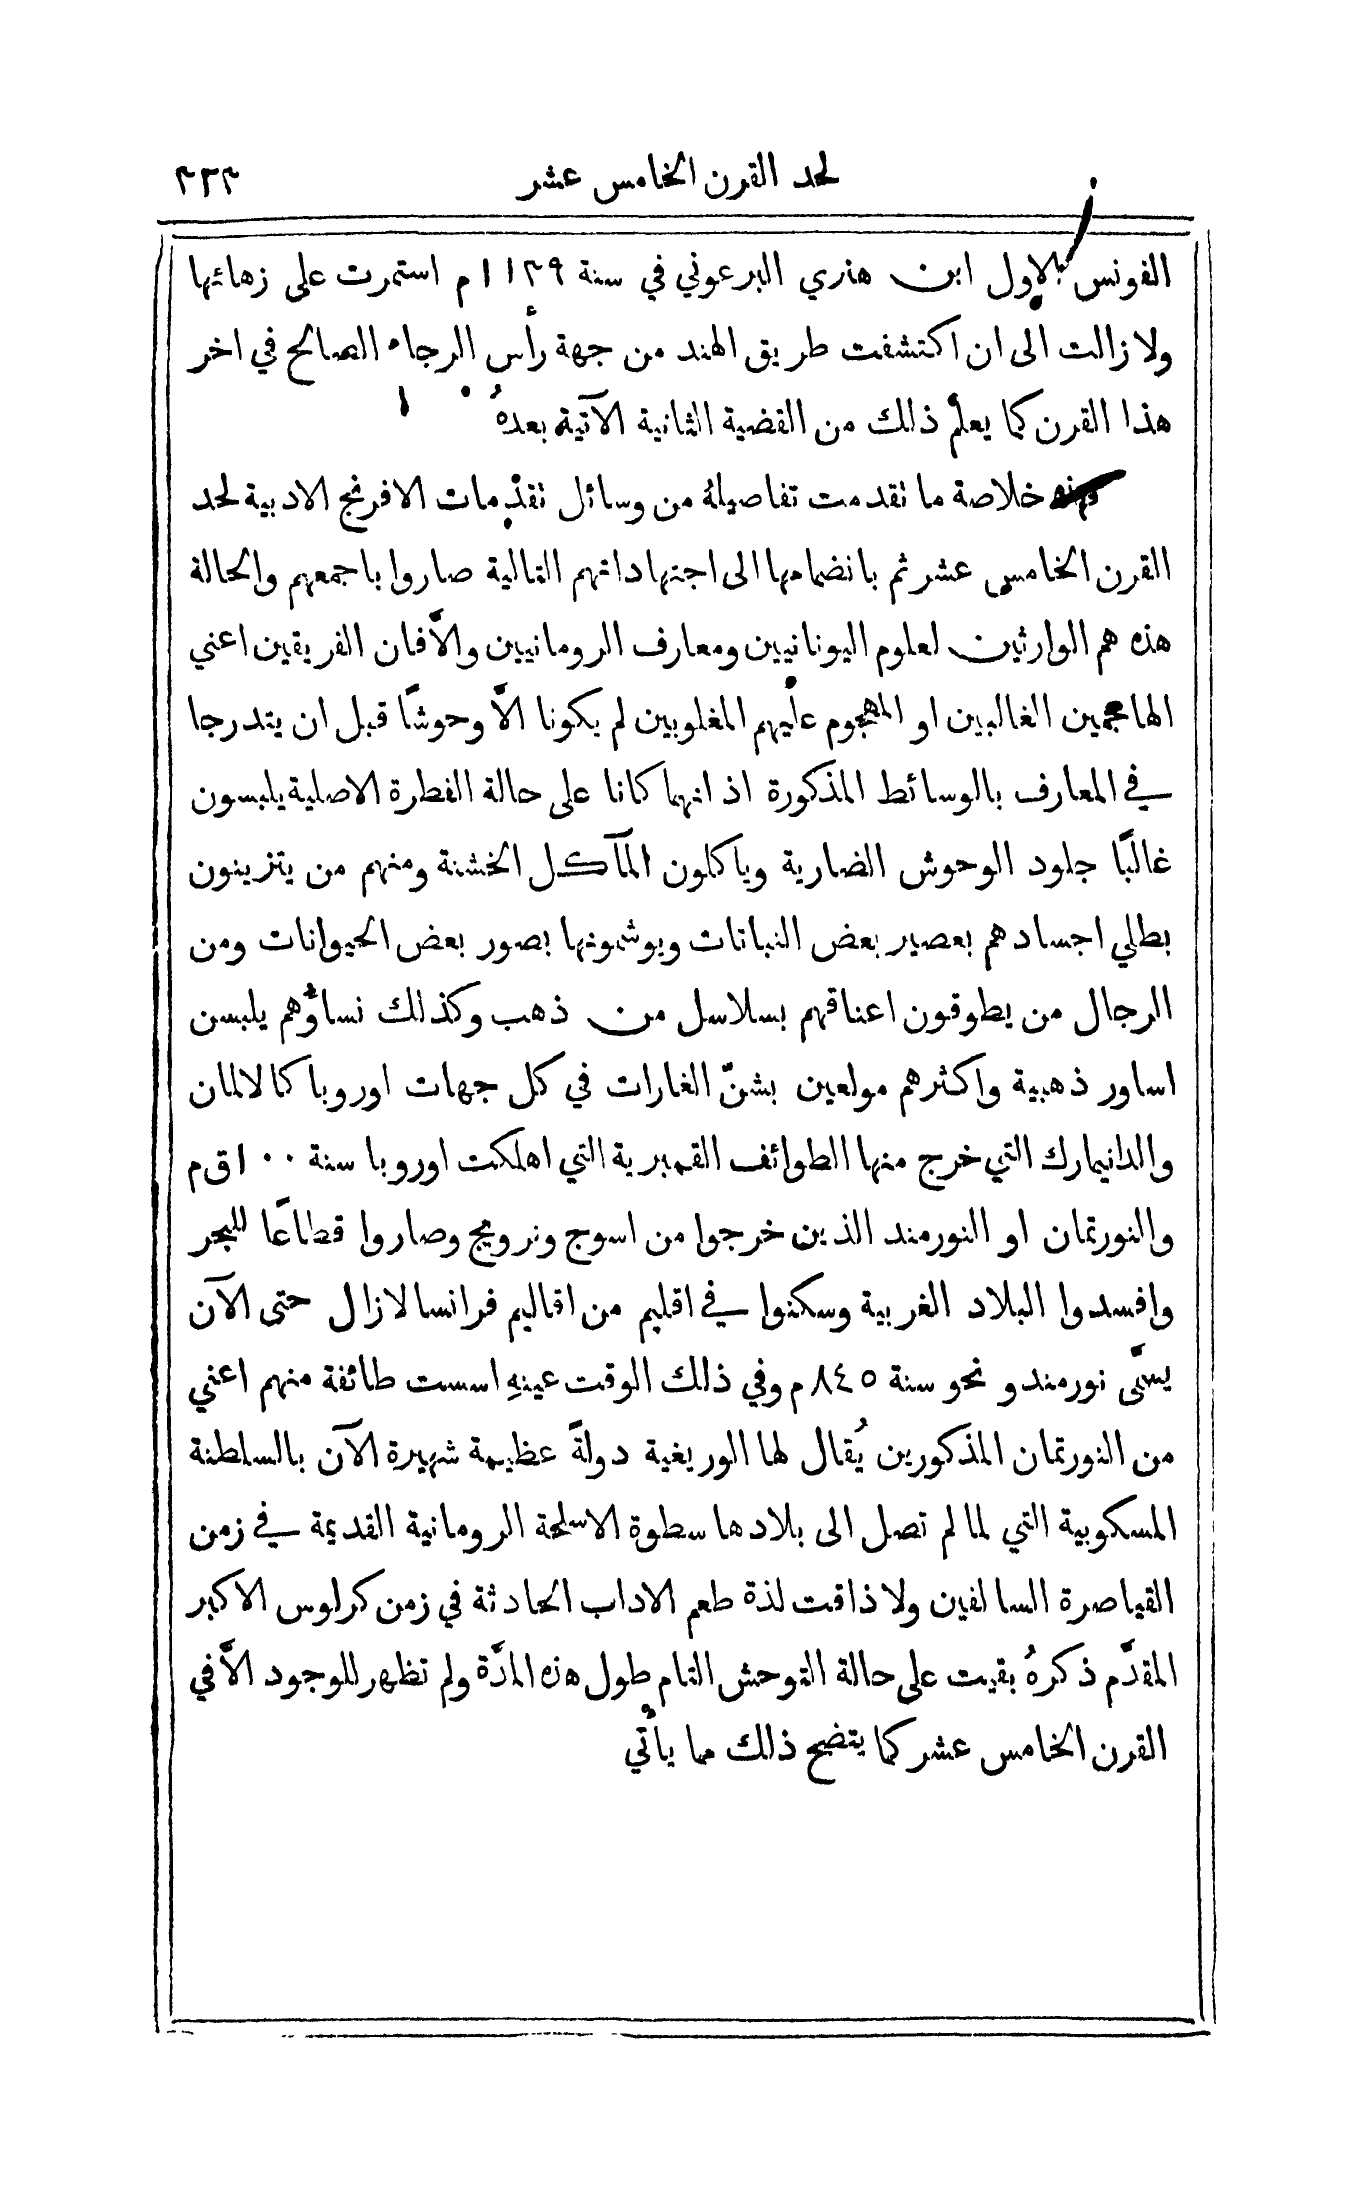 لحد القرن الخامس عشر ٣٢٣
الفونس الاول ابن هنري البرعوني في سنة ١١٣٩ م استمرت على زهائها
ولا زالت الى ان اكتشفت طريق الهند من جهة رأس الرجاء الصالح في اخر
هذا القرن كما يعلم ذلك من القضية الثانية الآتية بعدهُ
خلاصة ما تقدمت تفاصيلهُ من وسائل تقدُّمات الافرنج الادبية لحد
القرن الخامس عشر ثم بانضمامها الى اجتهاداتهم التالية صاروا باجمعهم والحالة
هذه هم الوارثين لعلوم اليونانيين ومعارف الرومانيين والَّا فان الفريقين اعني
الهاجمين الغالبين او المهجوم عليهم المغلوبين لم يكونا الَّا وحوشًا قبل ان يتدرجا
في المعارف بالوسائط المذكورة اذ انهما كانا على حالة الفطرة الاصلية يلبسون
غالبًا جلود الوحوش الضارية وياكلون المآكل الخشنة ومنهم من يتزينون
بطلي اجسادهم بعصير بعض النباتات ويوشمونها بصور بعض الحيوانات ومن
الرجال من يطوقون اعناقهم بسلاسل من ذهب وكذلك نساؤهم يلبسن
اساور ذهبية واكثرهم مولعين بشنّ الغارات في كل جهات اوروبا كالالمان
والدانيمارك التي خرج منها الطوائف القمبرية التي اهلكت اوروبا سنة ١٠٠ ق م
والنورتمان او النورمند الذين خرجوا من اسوج ونرويج وصاروا قطاعًا للبحر
وافسدوا البلاد الغربية وسكنوا في اقليم من اقاليم فرانسا لازال حتى الآن
يسمَّى نورمندو نحو سنة ٨٤٥ م وفي ذلك الوقت عينهِ اسست طائفة منهم اعني
من النورتمان المذكورين يُقال لها الوريغية دولةً عظيمة شهيرة الآن بالسلطنة
المسكوبية التي لما لم تصل الى بلادها سطوة الاسلحة الرومانية القديمة في زمن
القياصرة السالفين ولا ذاقت لذة طعم الاداب الحادثة في زمن كرلوس الاكبر
المقدَّم ذكرهُ بقيت على حالة التوحش التام طول هذه المدَّة ولم تظهر للوجود الَّا في
القرن الخامس عشر كما يتضح ذلك مما يأتي